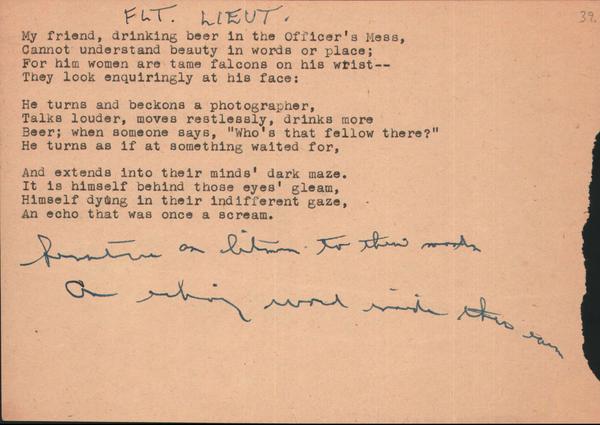 FLT. LIEUT.
39.
My friend, drinking beer in the Officer's Mess,
Cannot understand beauty in words or place;
For him women are tame falcons on his wrist--
They look enquiringly at his face:
He turns and beckons a photographer,
Talks louder, moves restlessly, drinks more
Beer; when someone says, "Who's that fellow there?"
He turns as if at something waited for,
And extends into their minds' dark maze.
It is himself behind those eyes' gleam,
Himself dying in their indifferent gaze,
An echo that was once a scream.
to their
An echoing word inside their